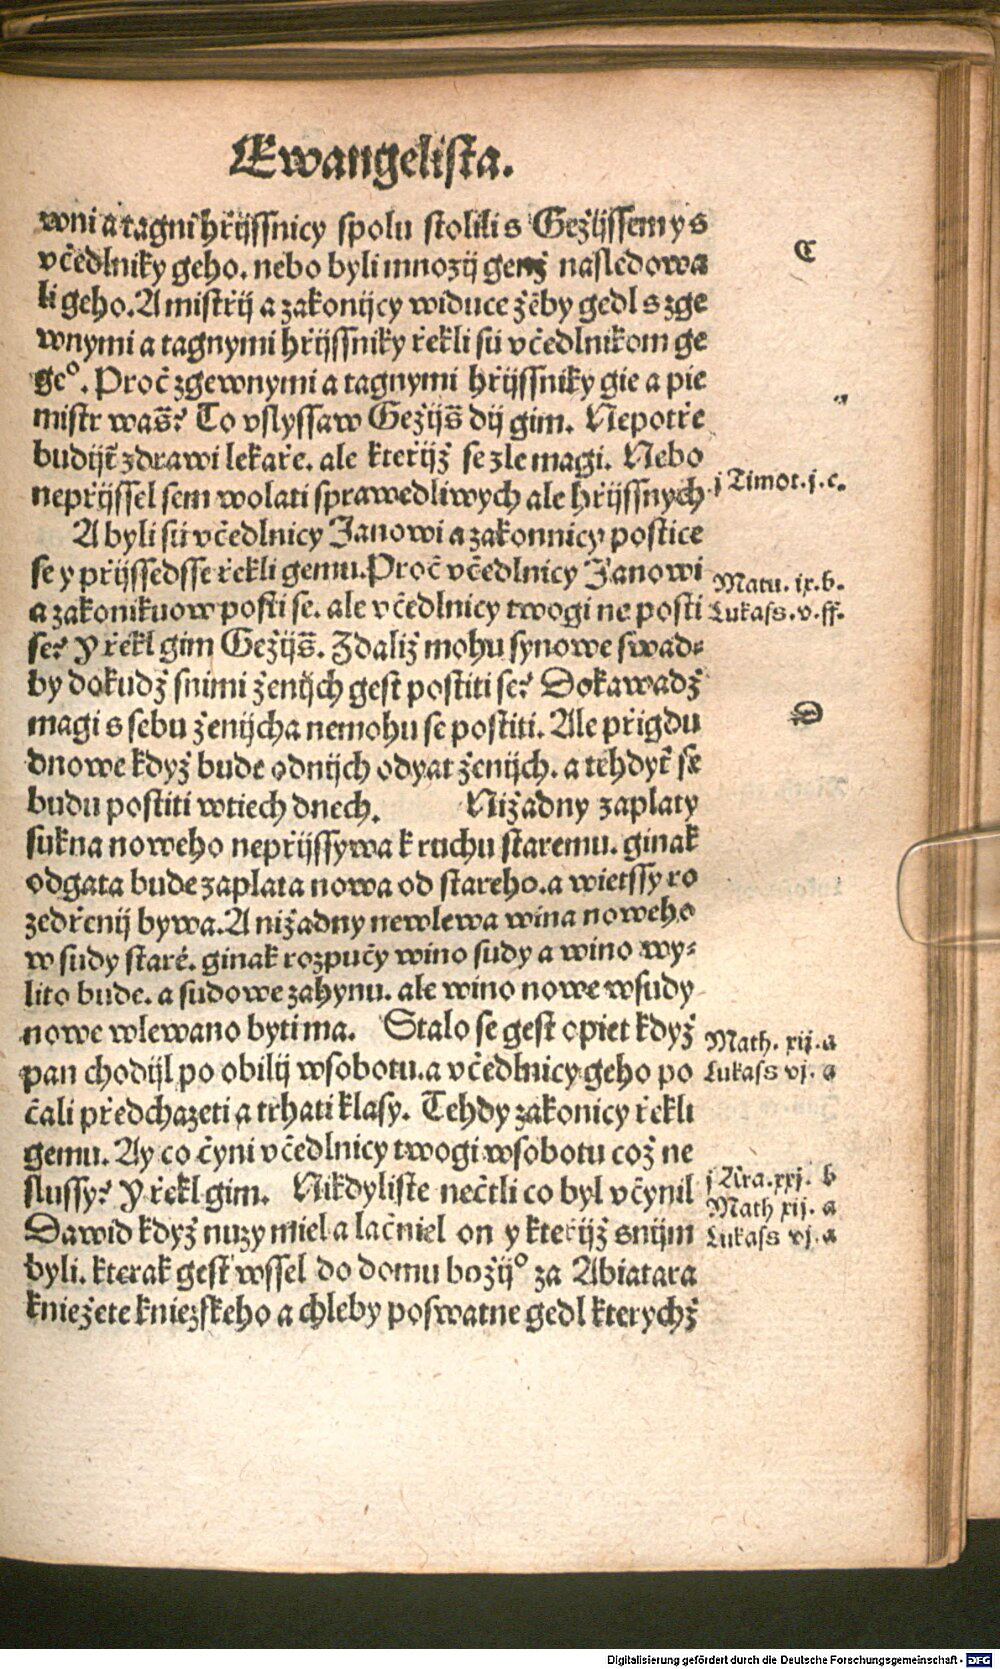 Ewangelista.
wni a tagni hřijssnicy spolu stolili s Gežijssem y s
včedlniky geho. nebo byli mnozij genž nasledowa
li geho. A mistřij a zakonijcy widuce žěby gedl s zge
wnymi a tagnymi hřijssniky řekli sú včedlnikom ge
geº. Proč zgewnymi a tagnymi hřijssniky gie a pie
mistr waš? To vslyssaw Gežijš dij gim. Nepotře
budijť zdrawi lekaře. ale kteřijž se zle magi. Nebo
nepřijssel sem wolati sprawedliwych ale hřijssnych
A byli sú včedlnicy Janowi a zakonnicy postice
se y přijssedsse řekli gemu. Proč včedlnicy Janowi
a zakonikuow posti se. ale včedlnicy twogi ne posti
se? Y řekl gim Gežijš. Zdaliž mohu synowe swad⸗
by dokudž snimi ženijch gest postiti se? Dokawadž
magi s sebu ženijcha nemohu se postiti. Ale přigdu
dnowe když bude odnijch odyat ženijch. a tehdyť se
budu postiti wtiech dnech. Nižadny zaplaty
sukna noweho nepřijssywa k ruchu staremu. ginak
odgata bude zaplata nowa od stareho. a wietssy ro
zedřenij bywa. A nižadny newlewa wina noweho
w sudy staré. ginak rozpučy wino sudy a wino wy⸗
lito bude. a sudowe zahynu. ale wino nowe wsudy
nowe wlewano byti ma. Stalo se gest opiet když
pan chodijl po obilij wsobotu. a včedlnicy geho po
čali předchazeti a trhati klasy. Tehdy zakonicy řekli
gemu. Ay co čyni včedlnicy twogi wsobotu což ne
slussy? Y řekl gim. Nikdyliste nečtli co byl včynil
Dawid když nuzy miel a lačniel on y kteřijž snijm
byli. kterak gest wssel do domu božijº za Abiatara
kniežete kniezskeho a chleby poswatne gedl kterychž
C
j Timot. j. c.
Matu. ix. b.
Lukass. v. ff.
D
Math. xij. a
Lukass vj. a
j Kra. xxj. b
Math xij. a
Lukass vj. a
Digitalisierung gefördert durch die Deutsche Forschungsgemeinschaft - DFG